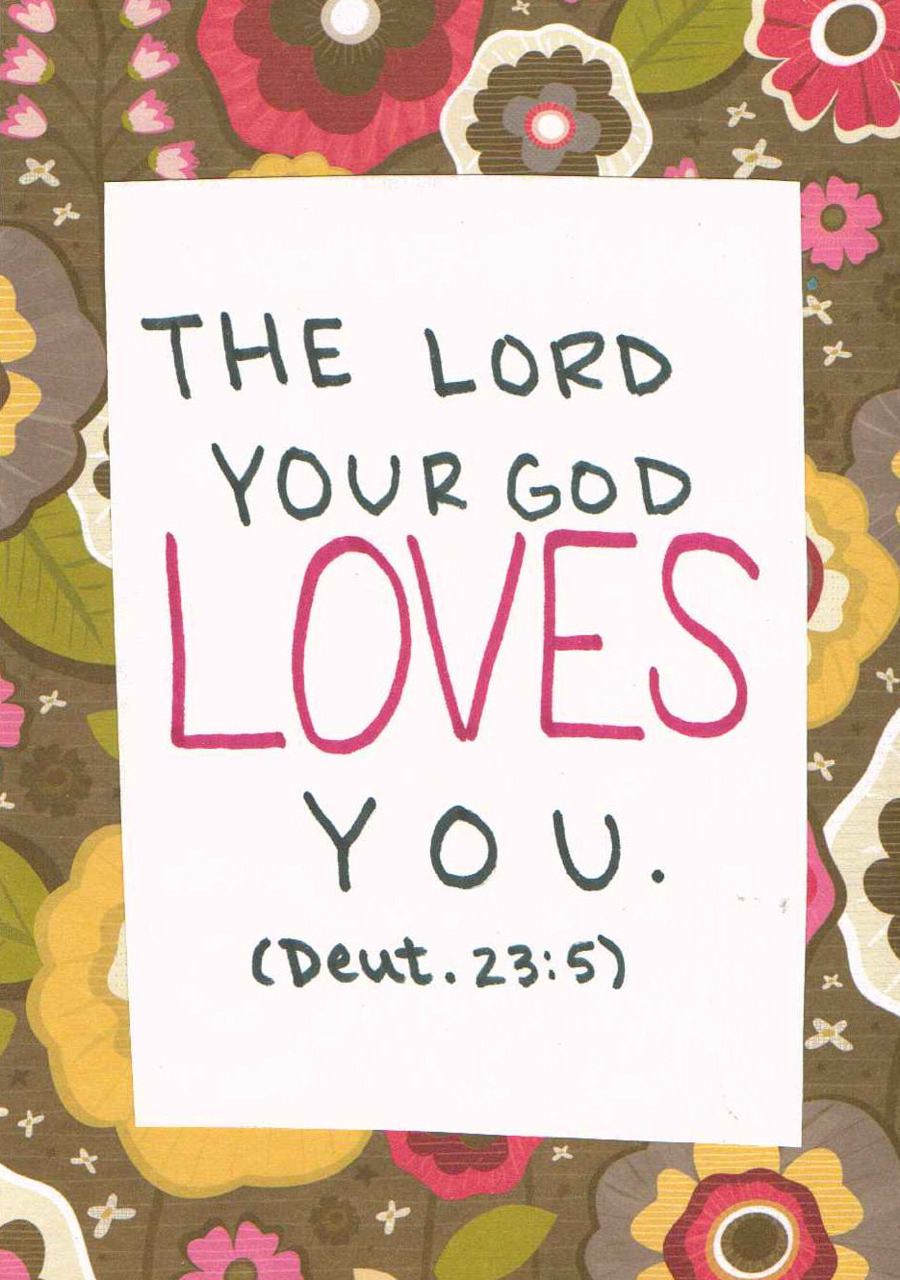 THE LORD
YOUR GOD
LOVES
YOU.
(Deut. 23:5)